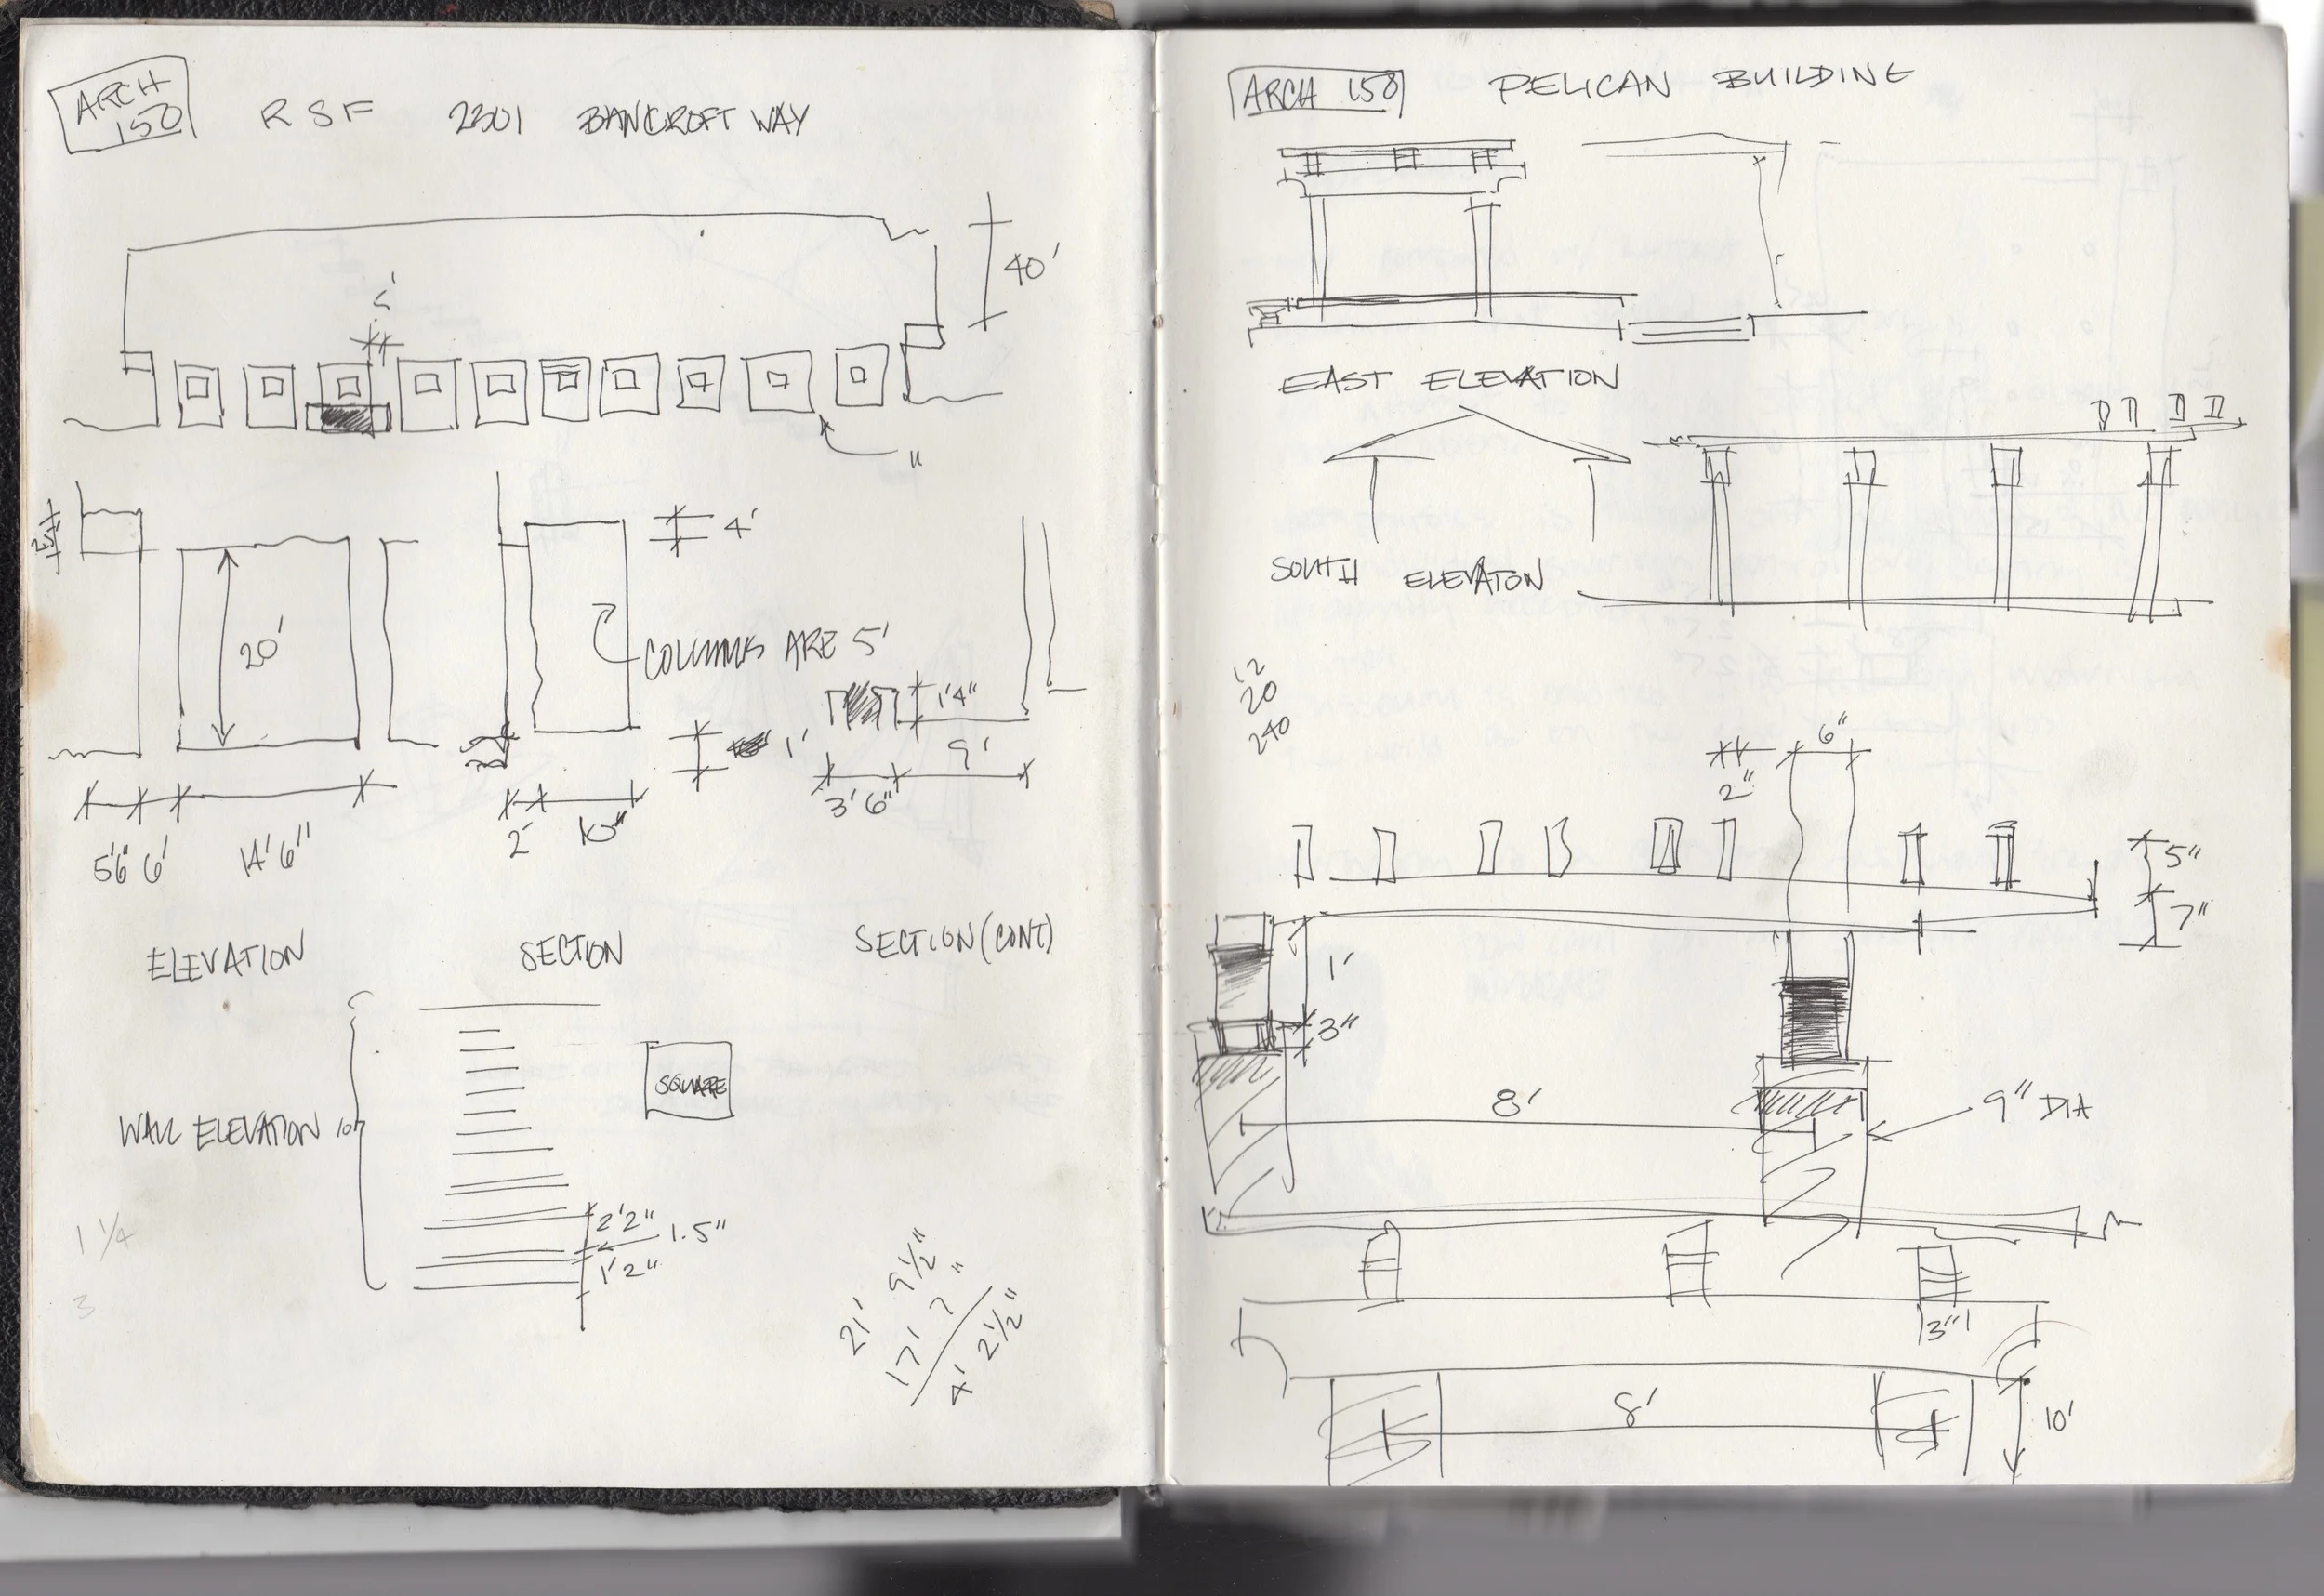 ARCH
150
RSF 2301 BANCROFT WAY
40'
5'
"
4'
20'
COLUMNS ARE 5'
1'4"
1'
9'
3' 6"
5'6" 6' 14' 6"
2'
ELEVATION SECTION SECTION (CONT)
SQUARE
WALL ELEVATION
2'2"
1.5"
1'2"
1 1/4
3
21' 9 1/2"
17' 7"
4' 2 1/2"
ARCH 150
PELICAN BUILDING
EAST ELEVATION
SOUTH ELEVATON
12
20
240
6"
2"
5"
7"
1'
3"
8'
9" DIA
3"
8'
10'